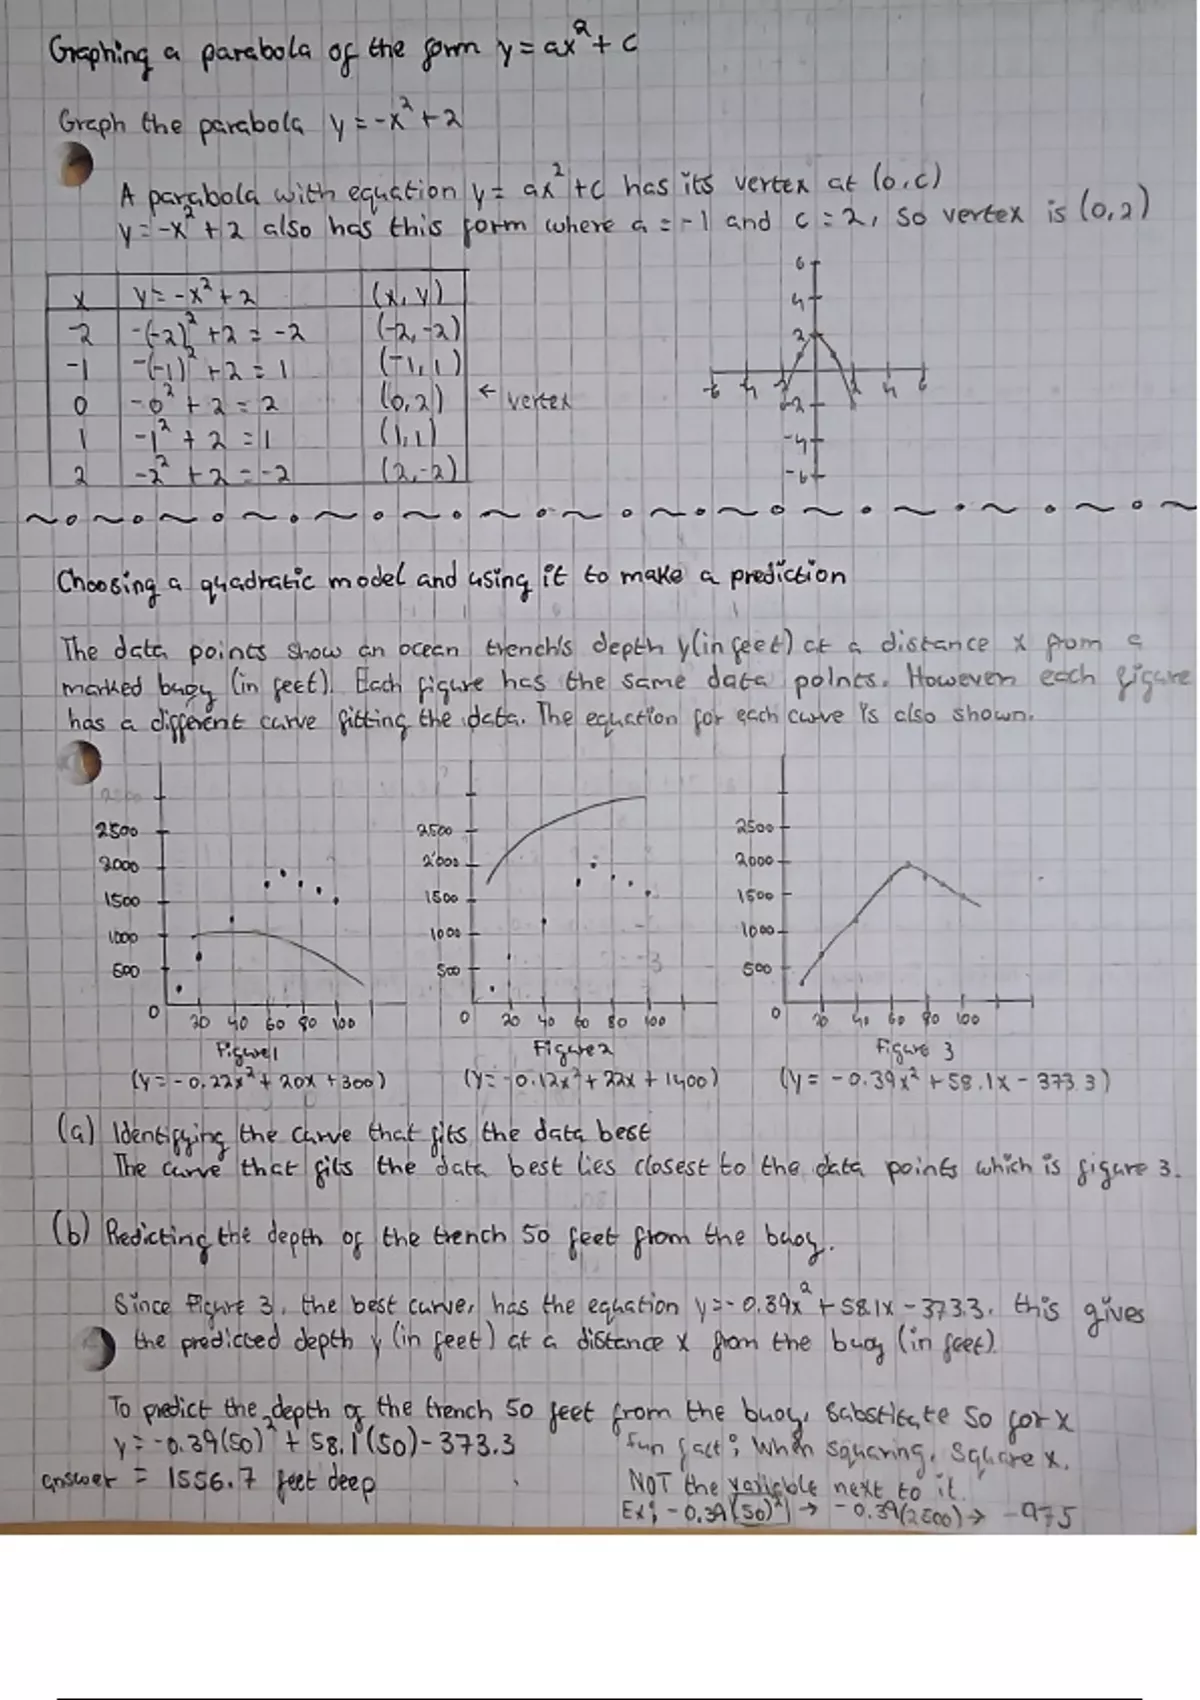 Graphing a parabola of the form y = ax² + c
Graph the parabola y = -x² + 2
A parabola with equation y = ax² + c has its vertex at (0,c)
y = -x² + 2 also has this form where a = -1 and c = 2, so vertex is (0,2)
x y = -x² + 2 (x, y)
-2 -(-2)² + 2 = -2 (-2,-2)
-1 -(-1)² + 2 = 1 (-1,1)
0 -0² + 2 = 2 (0,2) ← vertex
1 -1² + 2 = 1 (1,1)
2 -2² + 2 = -2 (2,-2)
6
4
2
-6 -4 -2 2 4 6
-2
-4
-6
Choosing a quadratic model and using it to make a prediction
The data points show an ocean trench's depth y (in feet) at a distance x from a
marked buoy (in feet). Each figure has the same data points. However each figure
has a different curve fitting the data. The equation for each curve is also shown.
2500
2000
1500
1000
500
0 20 40 60 80 100
Figure 1
(y = -0.22x² + 20x + 300)
2500
2000
1500
1000
500
0 20 40 60 80 100
Figure 2
(y = -0.12x² + 22x + 1400)
2500
2000
1500
1000
500
0 20 40 60 80 100
Figure 3
(y = -0.39x² + 58.1x - 373.3)
(a) Identifying the curve that fits the data best
The curve that fits the data best lies closest to the data points which is figure 3.
(b) Predicting the depth of the trench 50 feet from the buoy.
Since Figure 3, the best curve, has the equation y = -0.39x² + 58.1x - 373.3, this gives
the predicted depth y (in feet) at a distance x from the buoy (in feet).
To predict the depth of the trench 50 feet from the buoy, substitute 50 for x
y = -0.39(50)² + 58.1(50) - 373.3
answer = 1556.7 feet deep
fun fact; When squaring, square x.
NOT the variable next to it.
Ex; -0.39(50)² → -0.39(2500) → -975